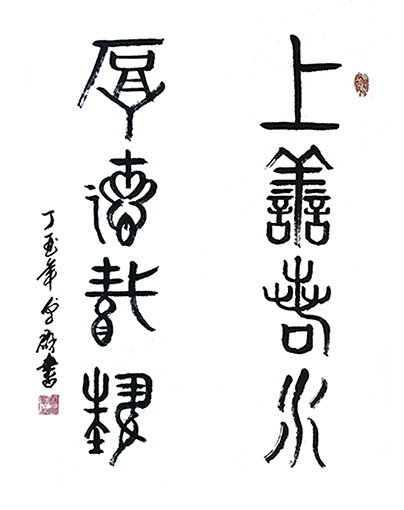 上善若水
厚德載物
丁酉年 書